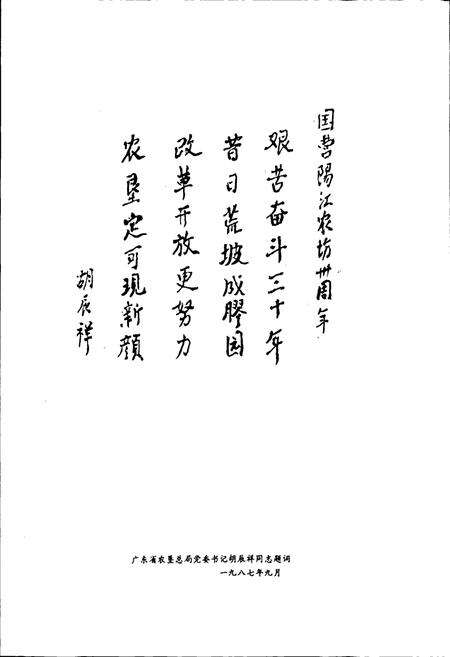 国营陽江农场卅周年
艰苦奋斗三十年
昔日荒坡成膠园
改革开放更努力
农垦定可现新顔
胡辰祥
广东省农垦总局党委书记胡辰祥同志题词
一九八七年九月